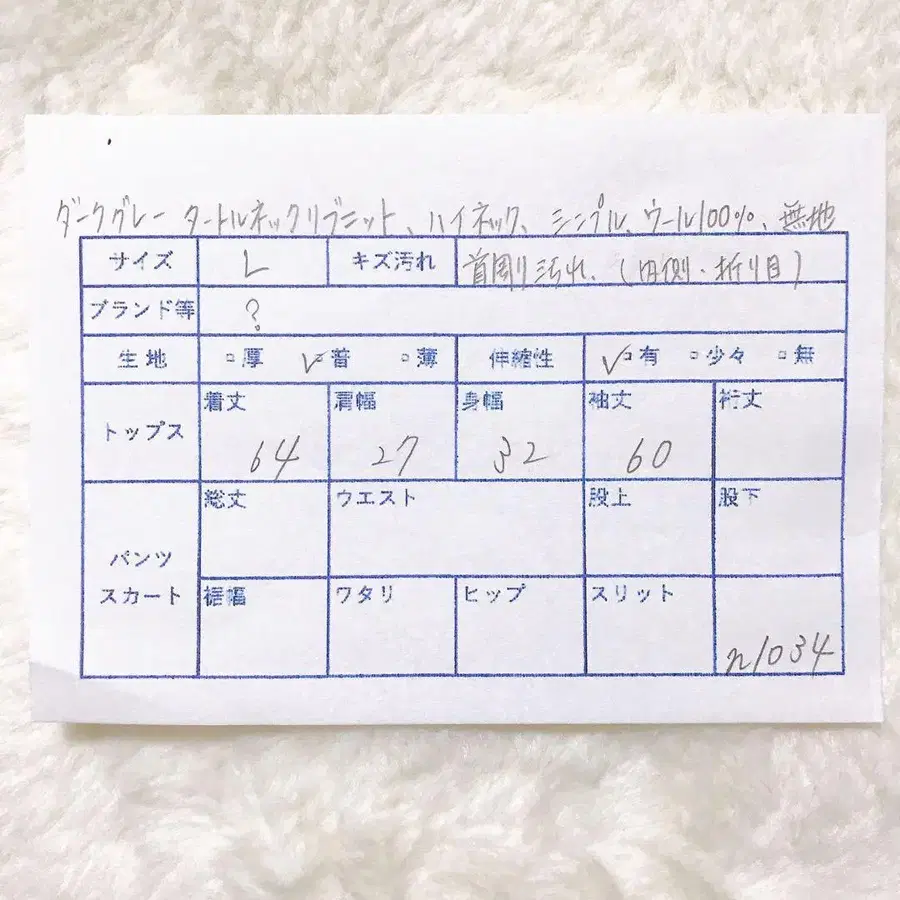 ダークグレー タートルネックリブニット、ハイネック、シンプル、ウール100%、無地
サイズ L キズ汚れ 首周り汚れ、(内側・折り目)
ブランド等 ?
生地 □厚 ☑普 □薄 伸縮性 ☑有 □少々 □無
トップス 着丈 肩幅 身幅 袖丈 裄丈
64 27 32 60
パンツ スカート
総丈 ウエスト 股上 股下
裾幅 ワタリ ヒップ スリット
n1034